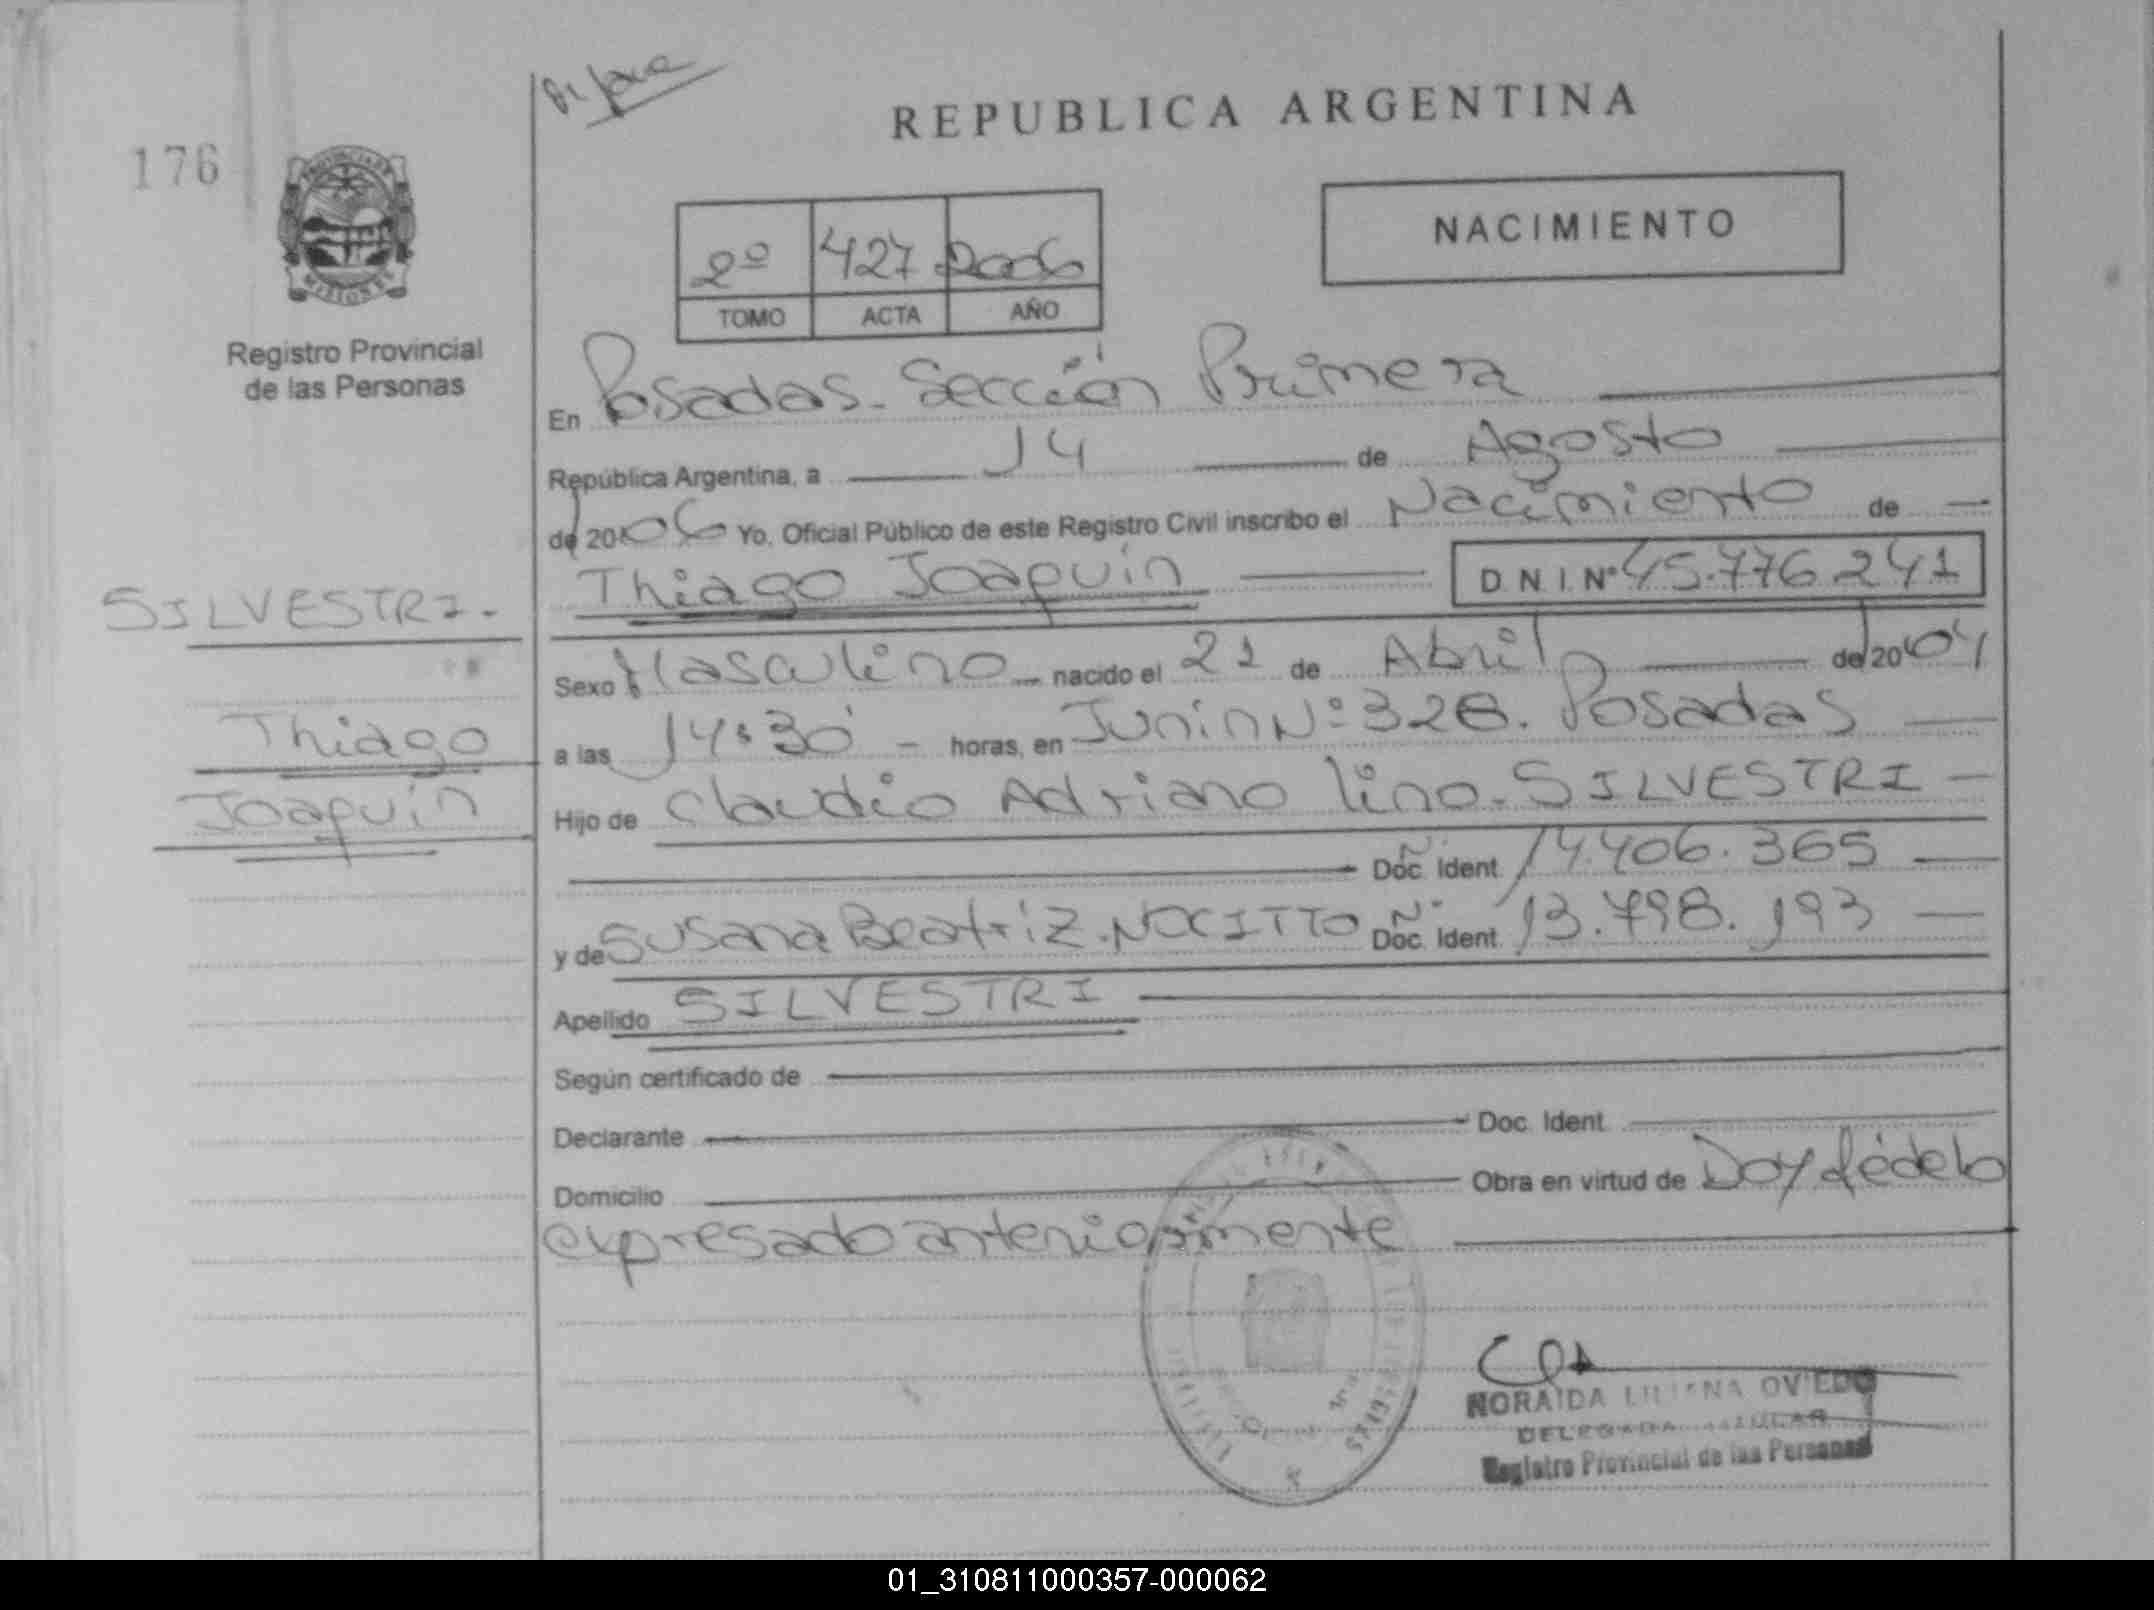 176
REPUBLICA ARGENTINA
NACIMIENTO
2º 427 2006
TOMO ACTA AÑO
PROVINCIA DE
MISIONES
Registro Provincial
de las Personas
En Posadas. Sección Primera
República Argentina, a 14 de Agosto
de 2006 Yo, Oficial Público de este Registro Civil inscribo el Nacimiento de
Thiago Joaquín D.N.I. Nº 45.776.241
SILVESTRI.
Thiago
Joaquín
Sexo Masculino nacido el 21 de Abril de 2004
a las 14:30 horas, en Junin Nº 328. Posadas
Hijo de Claudio Adriano Lino. SILVESTRI
Doc. Ident 14.406.365
y de Susana Beatriz. NOCITTO Doc. Ident. 13.798.193
Apellido SILVESTRI
Según certificado de
Declarante Doc. Ident
Domicilio Obra en virtud de Doy fé de lo
expresado anteriormente
NORAIDA LILIANA OVIEDO
DELEGADA
Registro Provincial de las Personas
01_310811000357-000062